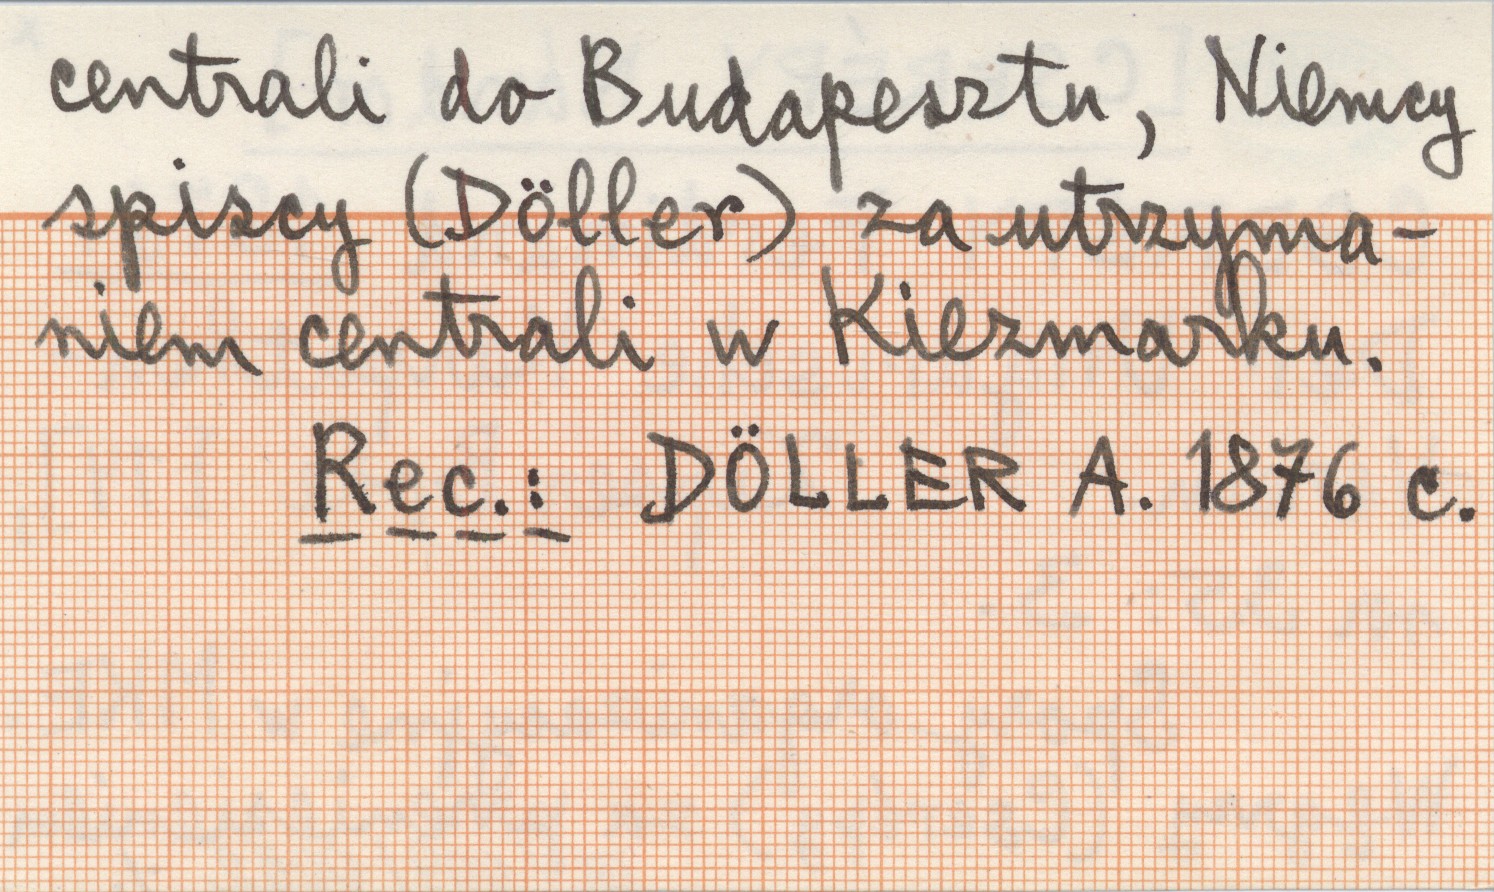 centrali do Budapesztu, Niemcy
spiscy (Döller) za utrzyma-
niem centrali w Kiezmarku.
Rec.: DÖLLER A. 1876 c.